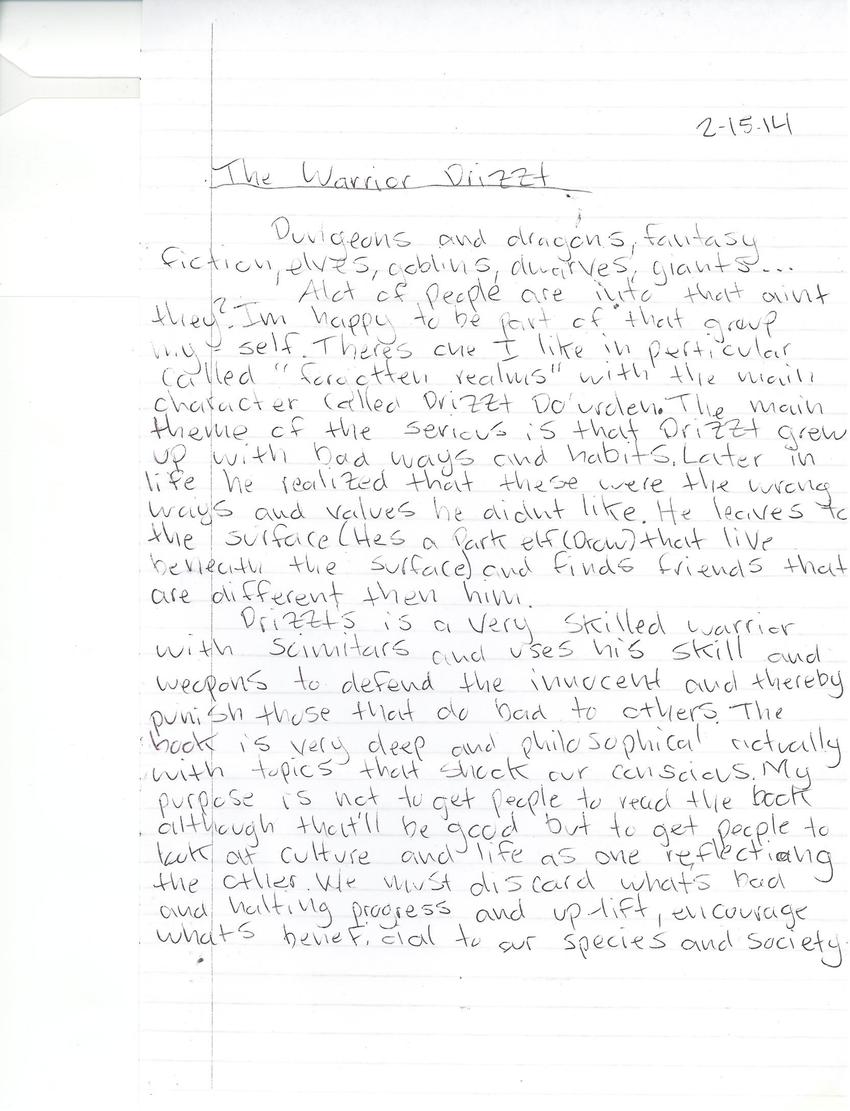 2-15-14
The Warrior Drizzt
Dungeons and dragons, fantasy
fiction, elves, goblins, dwarves, giants...
Alot of people are into that aint
they? Im happy to be part of that group
my-self. Theres one I like in perticular
called "forgotten realms" with the main
character called Drizzt Do'urden. The main
theme of the serious is that Drizzt grew
up with bad ways and habits. Later in
life he realized that these were the wrong
ways and values he didnt like. He leaves to
the surface (Hes a Dark elf (Drow) that live
beneath the surface) and finds friends that
are different then him.
Drizzts is a very skilled warrior
with scimitars and uses his skill and
weapons to defend the innocent and thereby
punish those that do bad to others. The
book is very deep and philosophical actually
with topics that shock our conscious. My
purpose is not to get people to read the book
although that'll be good but to get people to
look at culture and life as one reflecting
the other. We must discard what's bad
and halting progress and up-lift, encourage
whats beneficial to our species and society